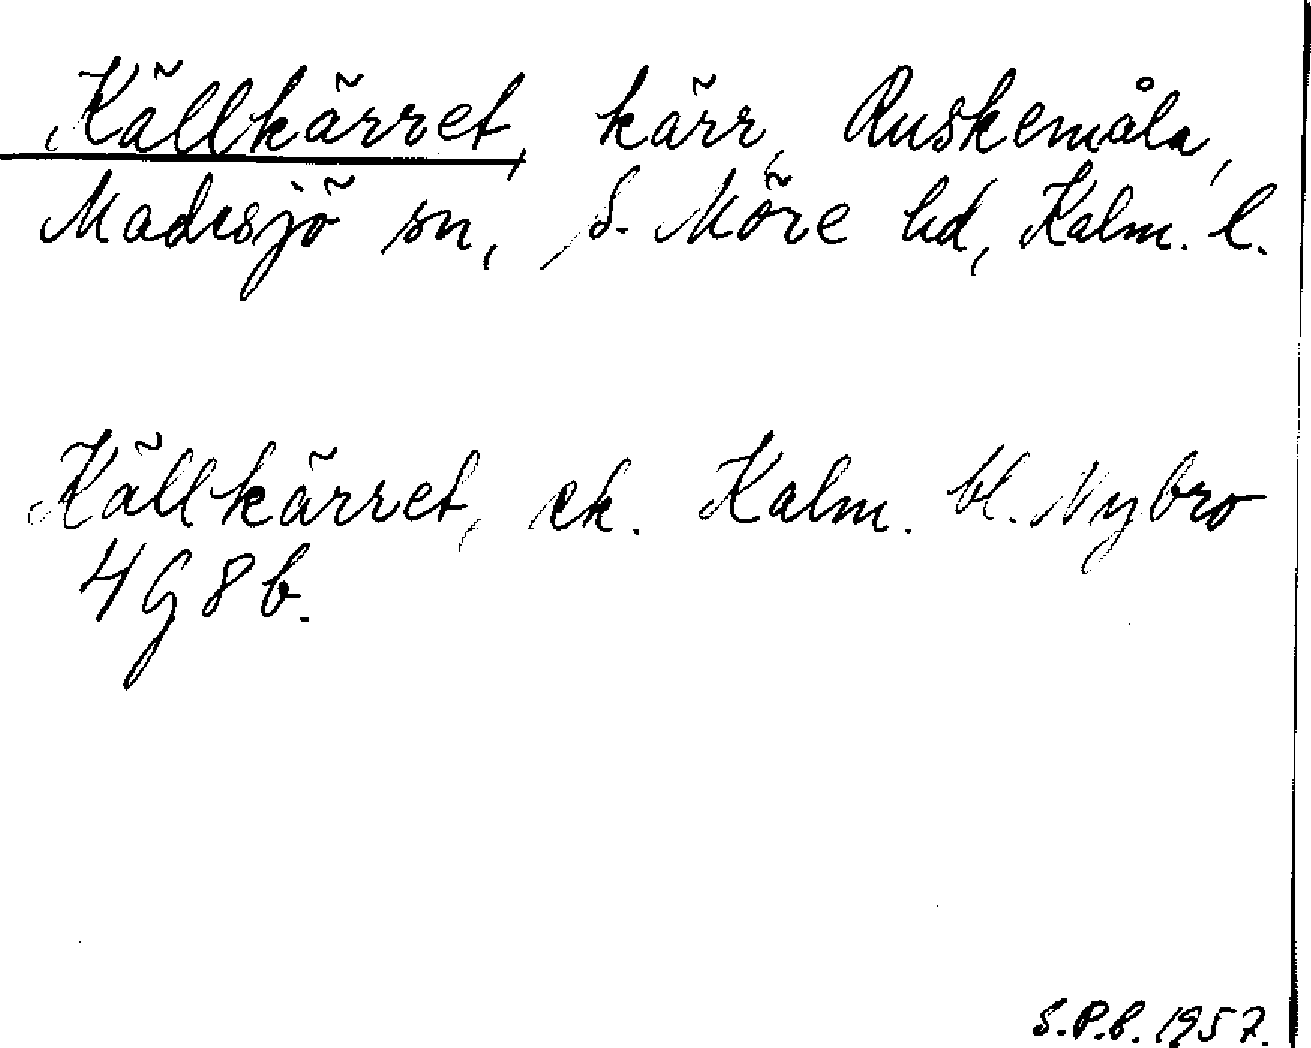 Källkärret, kärr, Ruskemåla,
Madesjö sn, S. Möre hd, Kalm. l.
Källkärret, ek. Kalm. bl. Nybro
4G8b.
S.P.B. 1957.